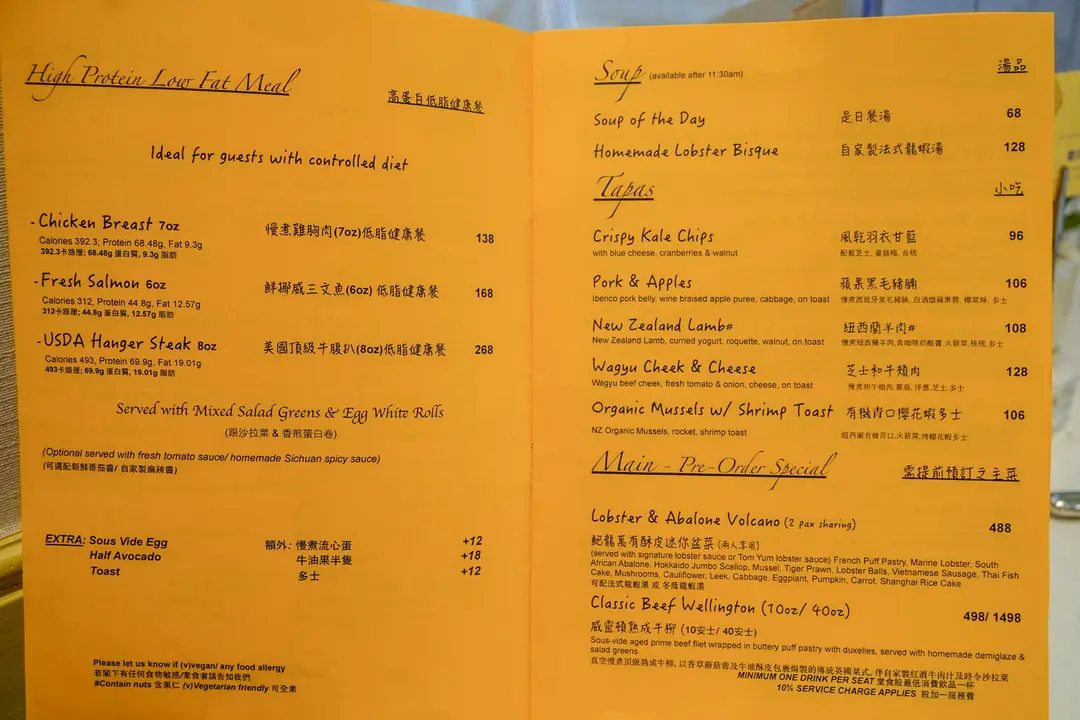 High Protein Low Fat Meal
高蛋白低脂健康餐
Ideal for guests with controlled diet
- Chicken Breast 7oz 慢煮雞胸肉(7oz)低脂健康餐 138
Calories 392.3; Protein 68.48g, Fat 9.3g
392.3卡路厘; 68.48g 蛋白質, 9.3g 脂肪
- Fresh Salmon 6oz 鮮挪威三文魚(6oz) 低脂健康餐 168
Calories 312, Protein 44.8g, Fat 12.57g
312卡路厘; 44.8g 蛋白質, 12.57g 脂肪
- USDA Hanger Steak 8oz 美國頂級牛腹扒(8oz)低脂健康餐 268
Calories 493, Protein 69.9g, Fat 19.01g
493卡路厘; 69.9g 蛋白質, 19.01g 脂肪
Served with Mixed Salad Greens & Egg White Rolls
(跟沙拉菜 & 香煎蛋白卷)
(Optional served with fresh tomato sauce/ homemade Sichuan spicy sauce)
(可選配新鮮番茄醬/ 自家製麻辣醬)
EXTRA: Sous Vide Egg 額外: 慢煮流心蛋 +12
Half Avocado 牛油果半隻 +18
Toast 多士 +12
Please let us know if (v)vegan/ any food allergy
若閣下有任何食物敏感/素食者請告知我們
#Contain nuts 含果仁 (v)Vegetarian friendly 可全素
Soup (available after 11:30am) 湯品
Soup of the Day 是日餐湯 68
Homemade Lobster Bisque 自家製法式龍蝦湯 128
Tapas 小吃
Crispy Kale Chips 風乾羽衣甘藍 96
with blue cheese. cranberries & walnut 配藍芝士, 蔓越梅, 合桃
Pork & Apples 蘋果黑毛豬腩 106
Iberico pork belly, wine braised apple puree, cabbage, on toast 慢煮西班牙黑毛豬腩, 白酒燴蘋果蓉, 椰菜絲, 多士
New Zealand Lamb# 紐西蘭羊肉# 108
New Zealand Lamb, curried yogurt, roquette, walnut, on toast 慢煮紐西蘭羊肉,青咖喱奶酪醬,火箭菜,核桃,多士
Wagyu Cheek & Cheese 芝士和牛頰肉 128
Wagyu beef cheek, fresh tomato & onion, cheese, on toast 慢煮和牛頰肉,蕃茄, 洋蔥,芝士,多士
Organic Mussels w/ Shrimp Toast 有機青口櫻花蝦多士 106
NZ Organic Mussels, rocket, shrimp toast 紐西蘭有機青口,火箭菜,烤櫻花蝦多士
Main - Pre-Order Special 需提前預訂之主菜
Lobster & Abalone Volcano (2 pax sharing) 488
鮑龍萬有酥皮迷你盆菜 (兩人享用)
(served with signature lobster sauce or Tom Yum lobster sauce) French Puff Pastry, Marine Lobster, South
African Abalone, Hokkaido Jumbo Scallop, Mussel, Tiger Prawn, Lobster Balls, Vietnamese Sausage, Thai Fish
Cake, Mushrooms, Cauliflower, Leek, Cabbage, Eggplant, Pumpkin, Carrot, Shanghai Rice Cake
可配法式龍蝦湯 或 冬蔭龍蝦湯
Classic Beef Wellington (10oz/ 40oz) 498/ 1498
威靈頓熟成牛柳 (10安士/ 40安士)
Sous-vide aged prime beef filet wrapped in buttery puff pastry with duxelles, served with homemade demiglaze &
salad greens
真空慢煮頂級熟成牛柳, 以香草蘑菇蓉及牛油酥皮包裹焗製的傳統英國菜式, 伴自家製紅酒牛肉汁及時令沙拉菜
MINIMUM ONE DRINK PER SEAT 堂食設最低消費飲品一杯
10% SERVICE CHARGE APPLIES 設加一服務費